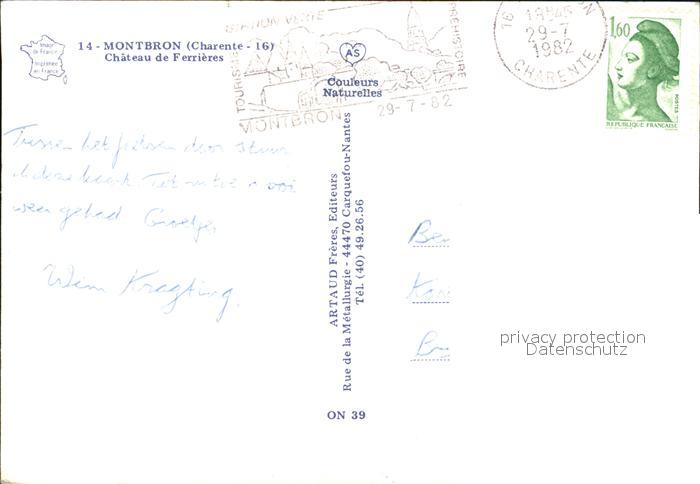 STATION VERTE
TOURISME
PREHISTOIRE
MONTBRON
29-7-82
16
18H45
29-7
1982
CHARENTE
1,60
POSTES
REPUBLIQUE FRANÇAISE
Image de France
Imprimée en France
14 - MONTBRON (Charente - 16)
Château de Ferrières
AS
Couleurs
Naturelles
Tussen het fietsen door stuur
deze kaart. Tot nu toe mooi
weer gehad Groetjes
Wim Kragting.
ARTAUD Frères, Editeurs
Rue de la Métallurgie - 44470 Carquefou-Nantes
Tél. (40) 49.26.56
ON 39
privacy protection
Datenschutz